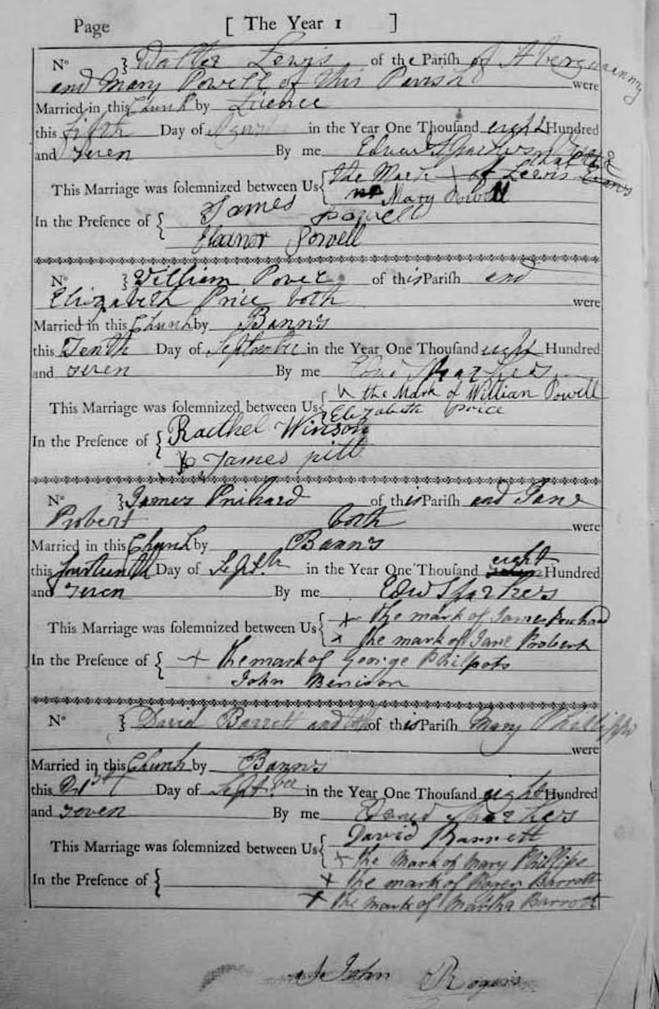 Page [ The Year 1 ]
No } Walter Lewis of the Parish of Abergavenny
and Mary Powell of this Parish were
Married in this Church by Licence
this fifth Day of in the Year One Thousand eight Hundred
and Seven By me
This Marriage was solemnized between Us { the Mark X of Lewis
Mary Powell
In the Presence of { James Powell
Eleanor Powell
No } William Powel of this Parish and
Elizabeth Price both were
Married in this Church by Banns
this Tenth Day of September in the Year One Thousand eight Hundred
and Seven By me
This Marriage was solemnized between Us { the Mark of William Powell
Elizabeth price
In the Presence of { Raithel Winson
James pitt
No } James Prichard of this Parish and Jane
Probert both were
Married in this Church by Banns
this fourteenth Day of Septr in the Year One Thousand eight Hundred
and Seven By me Edwd Sparkes
This Marriage was solemnized between Us { X the mark of James
X the mark of Jane Probert
In the Presence of { X the mark of George Philpots
John Benison
No } David Barrett and of this Parish Mary Phillips
were
Married in this Church by Banns
this 21st Day of Septber in the Year One Thousand eight Hundred
and Seven By me Sparkes
This Marriage was solemnized between Us { David Barrett
X the mark of Mary Phillips
In the Presence of { X the mark of Roger Barrott
X the mark of Martha Barrott
John Rogers